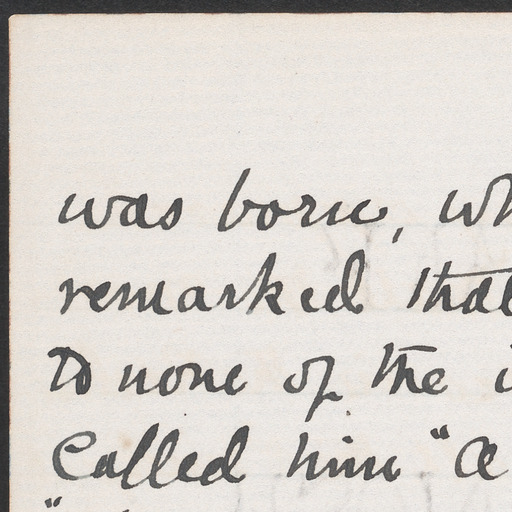 was born, wh
remarked that
to none of the i
Called him "a
"